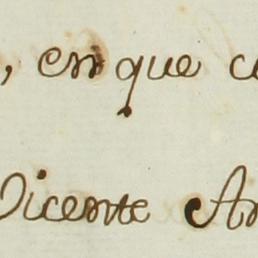 , en que
Vicente